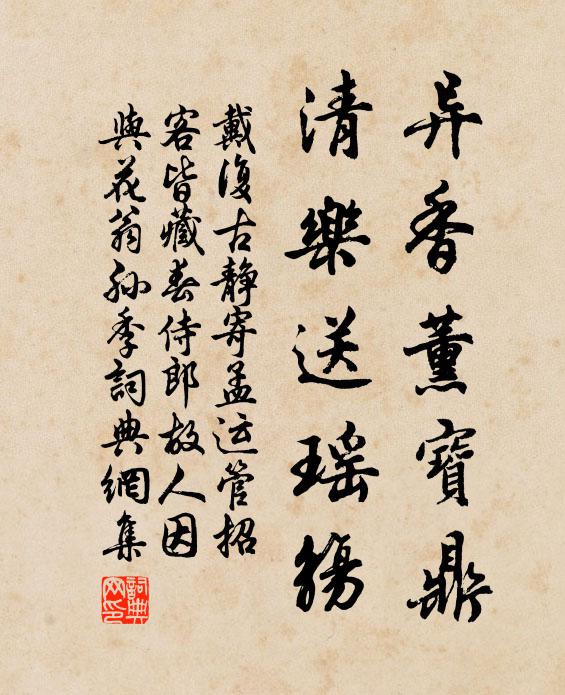 异香薰寶鼎
清樂送瑶觴
戴復古靜寄孟运管招
客皆藏春侍郎故人因
與花翁孫季詞典網集
詞典网印